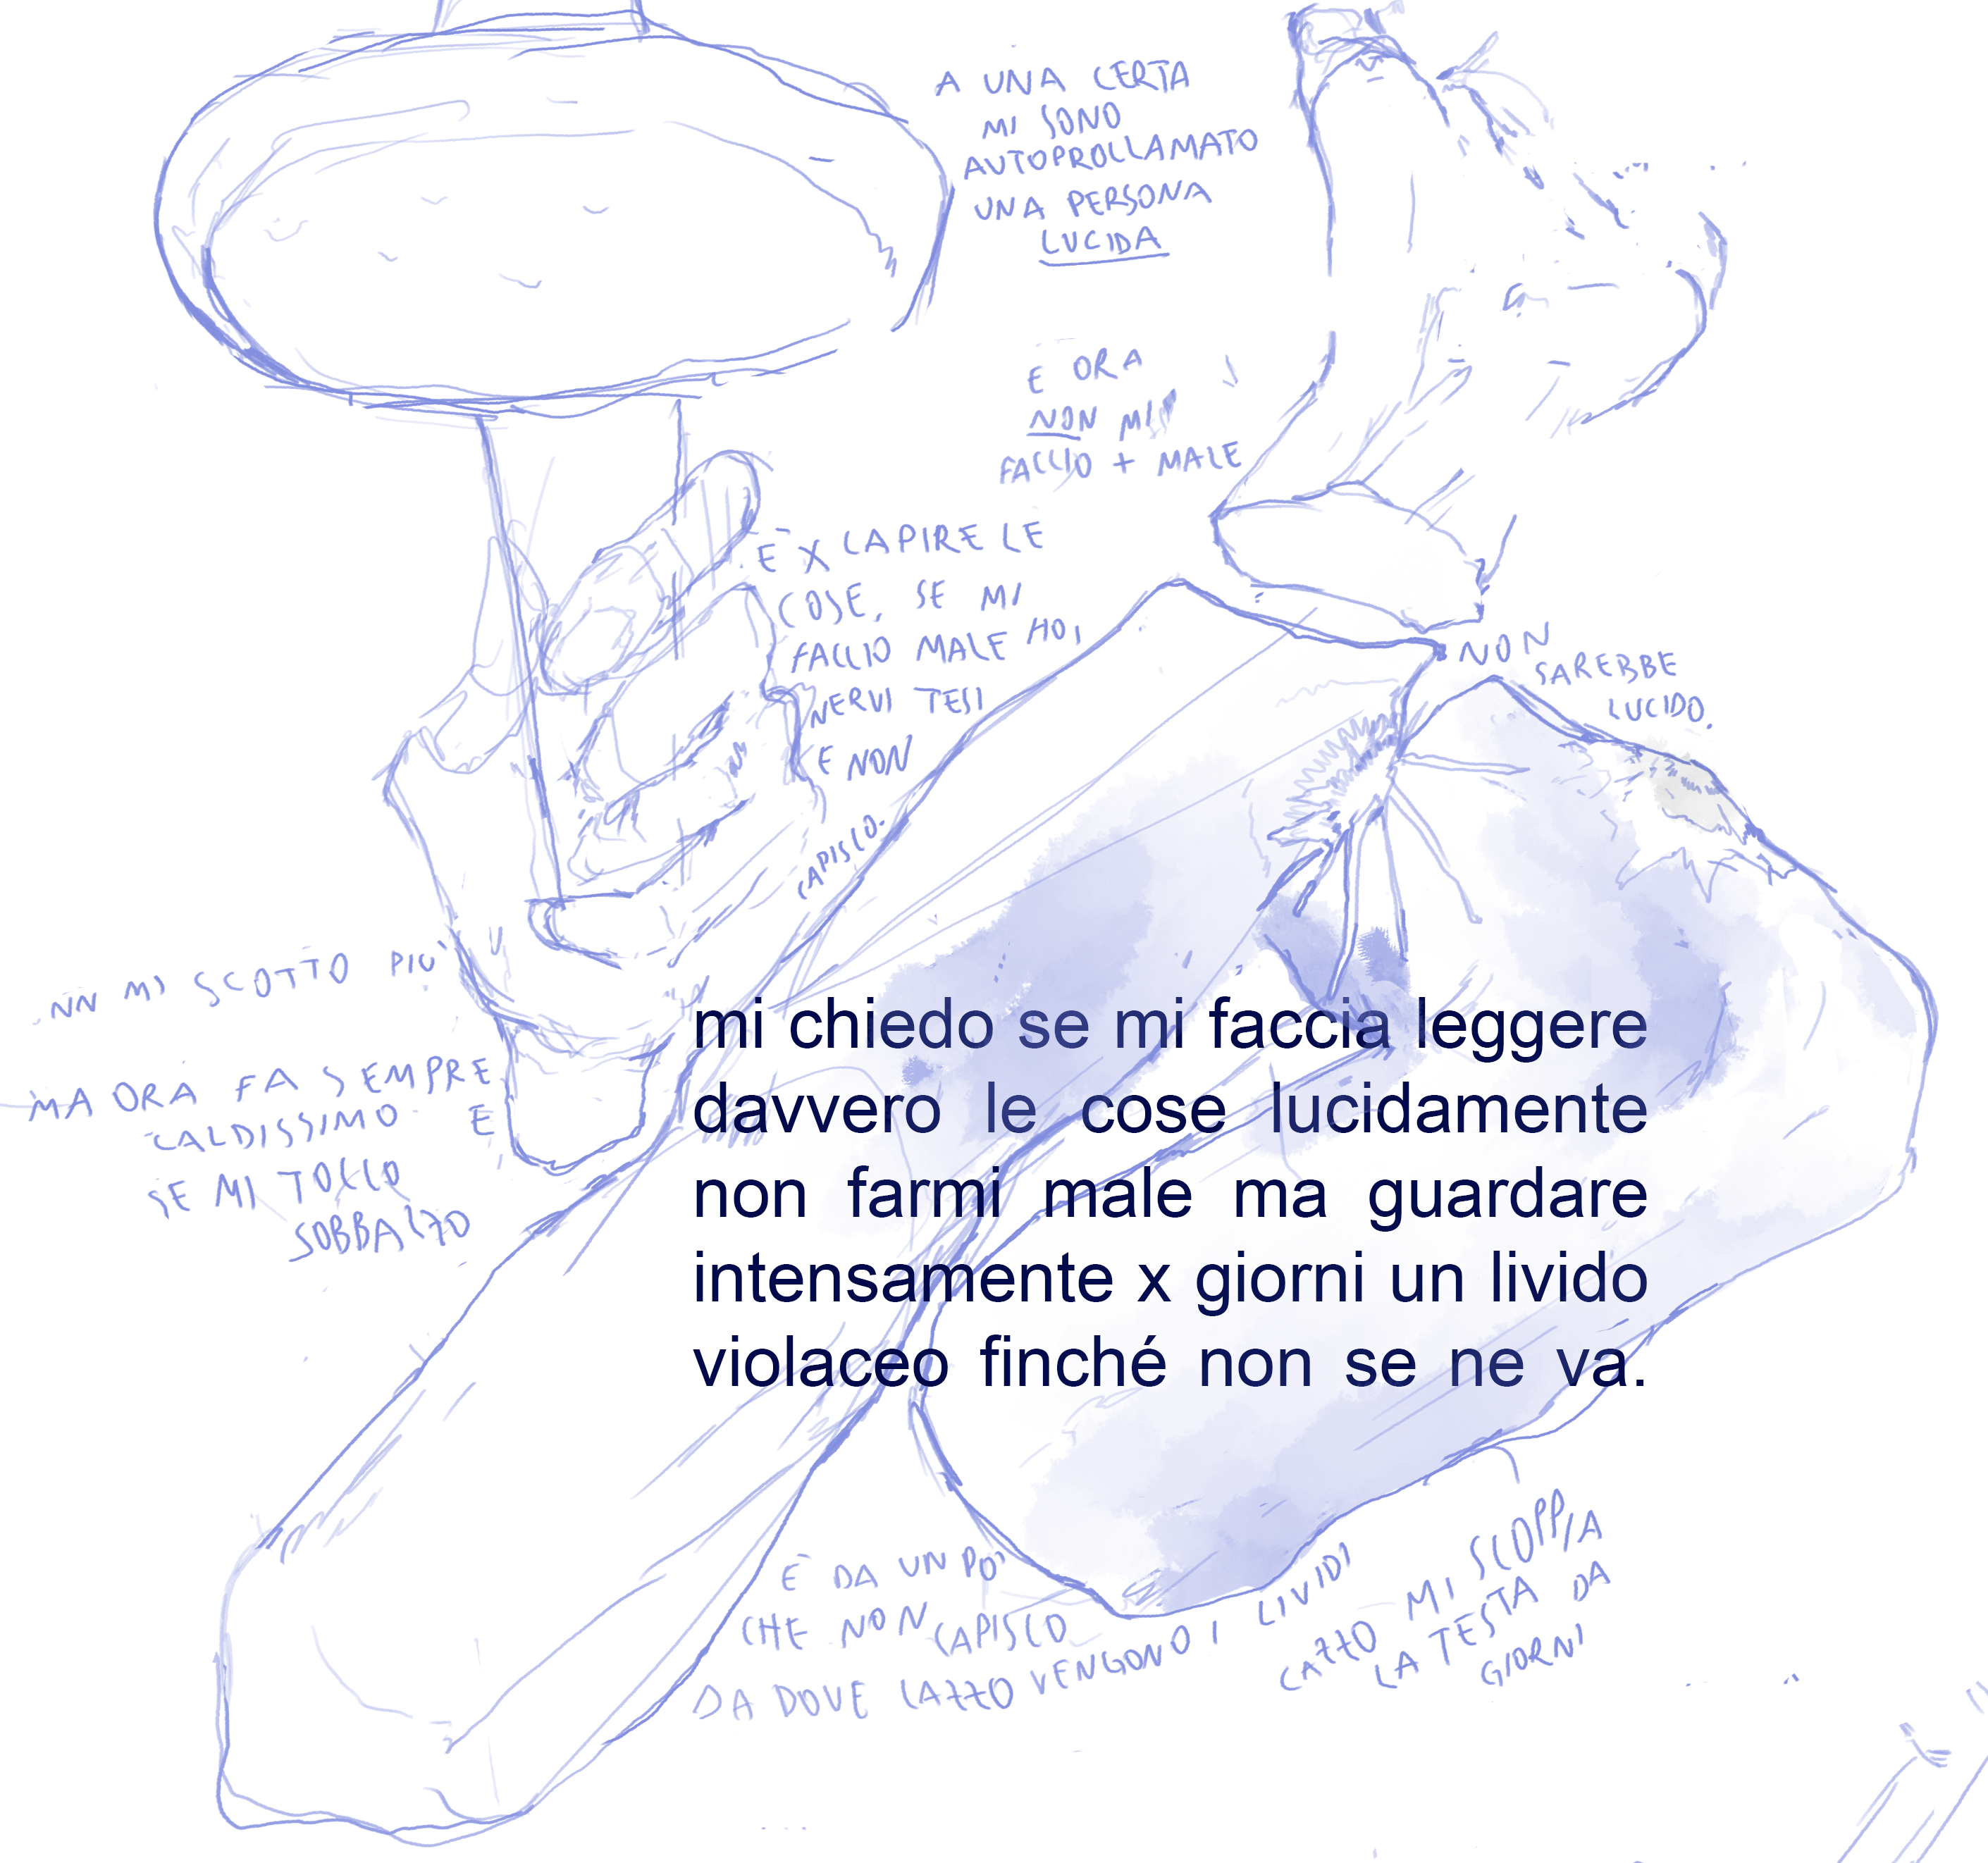 A UNA CERTA
MI SONO
AUTOPROCLAMATO
UNA PERSONA
LUCIDA
E ORA
NON MI
FACCIO + MALE
È X CAPIRE LE
COSE, SE MI
FACCIO MALE HO I
NERVI TESI
E NON
CAPISCO.
NON
SAREBBE
LUCIDO.
NN MI SCOTTO PIÙ
MA ORA FA SEMPRE
CALDISSIMO E
SE MI TOCCO
SOBBALZO
mi chiedo se mi faccia leggere
davvero le cose lucidamente
non farmi male ma guardare
intensamente x giorni un livido
violaceo finché non se ne va.
È DA UN PO'
CHE NON CAPISCO
DA DOVE CAZZO VENGONO I LIVIDI
CAZZO MI SCOPPIA
LA TESTA DA
GIORNI